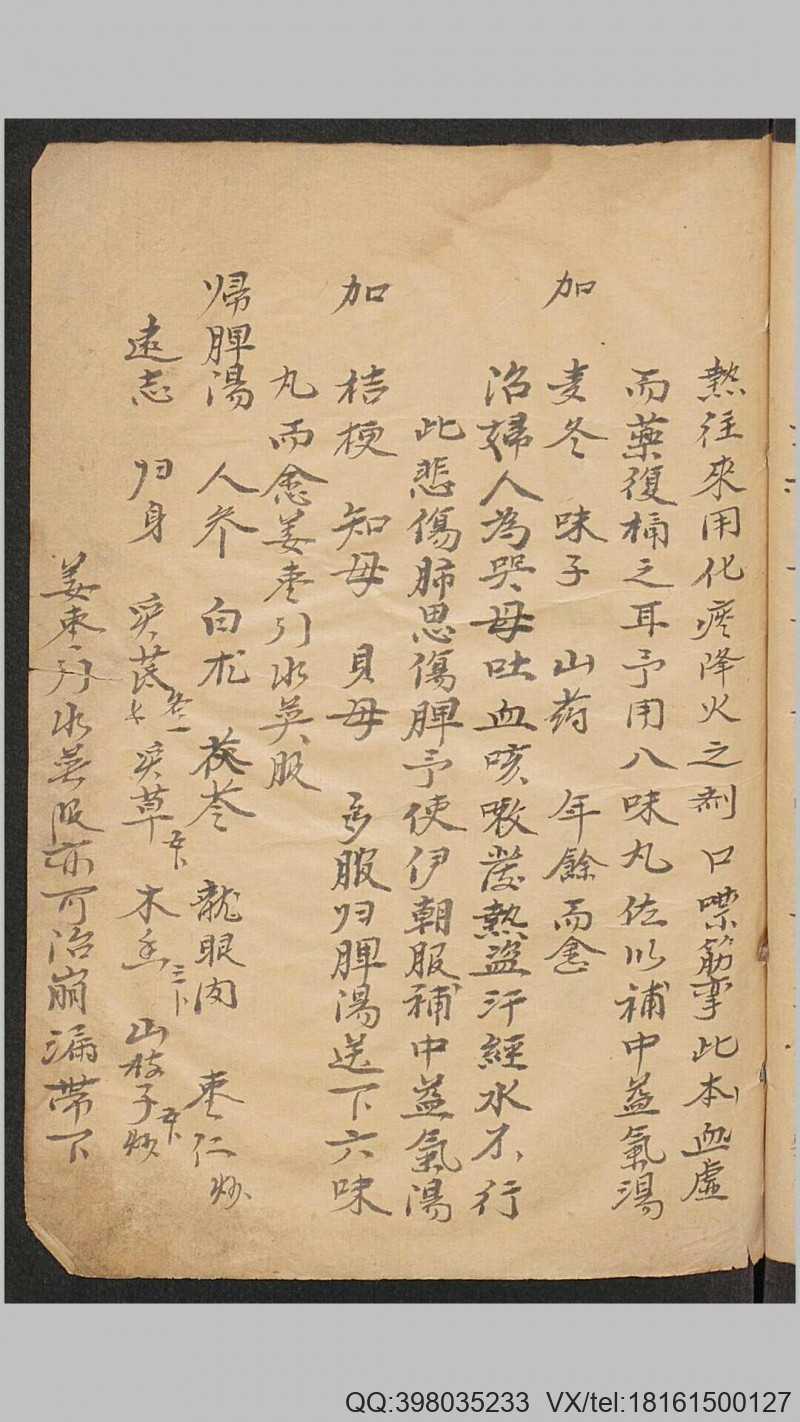 熱往來用化痰降火之剤口噤筋挛此本血虚
而藥復損之耳予用八味丸佐以補中益氣湯
加 麦冬 味子 山药 年餘而愈
治婦人為哭母吐血咳嗽發熱盗汗經水不行
此悲傷肺思傷脾予使伊朝服補中益氣湯
加 桔梗 知母 貝母 多服归脾湯送下六味
丸而愈姜枣引水英服
帰脾湯 人参 白朮 茯苓 龍眼肉 枣仁炒
遠志 归身 炙芪 炙草 木香 山枝子炒
姜枣引水英服亦可治崩漏帯下
QQ:398035233 VX/tel:18161500127